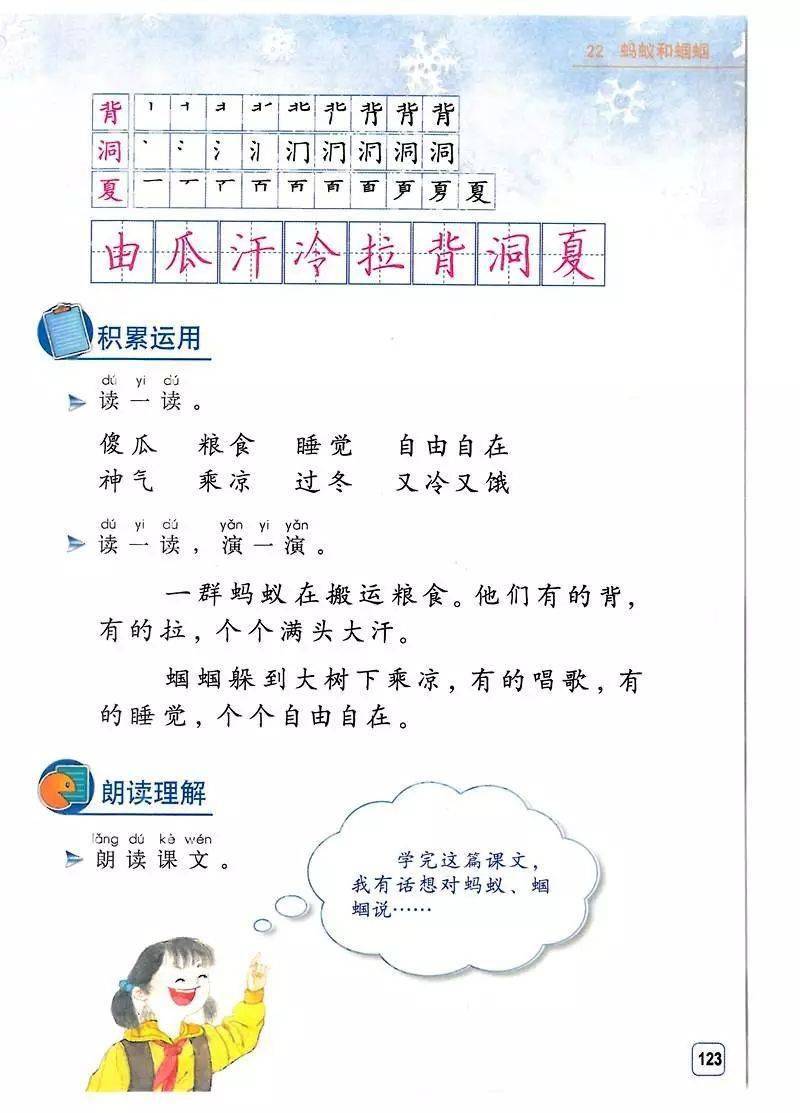 22 蚂蚁和蝈蝈
背 背
洞 洞
夏 一 夏
由瓜汗冷拉背洞夏
积累运用
dú yi dú
读一读。
傻瓜 粮食 睡觉 自由自在
神气 乘凉 过冬 又冷又饿
dú yi dú yǎn yi yǎn
读一读，演一演。
一群蚂蚁在搬运粮食。他们有的背，
有的拉，个个满头大汗。
蝈蝈躲到大树下乘凉，有的唱歌，有
的睡觉，个个自由自在。
朗读理解
lǎng dú kè wén
朗读课文。
学完这篇课文，
我有话想对蚂蚁、蝈
蝈说……
123